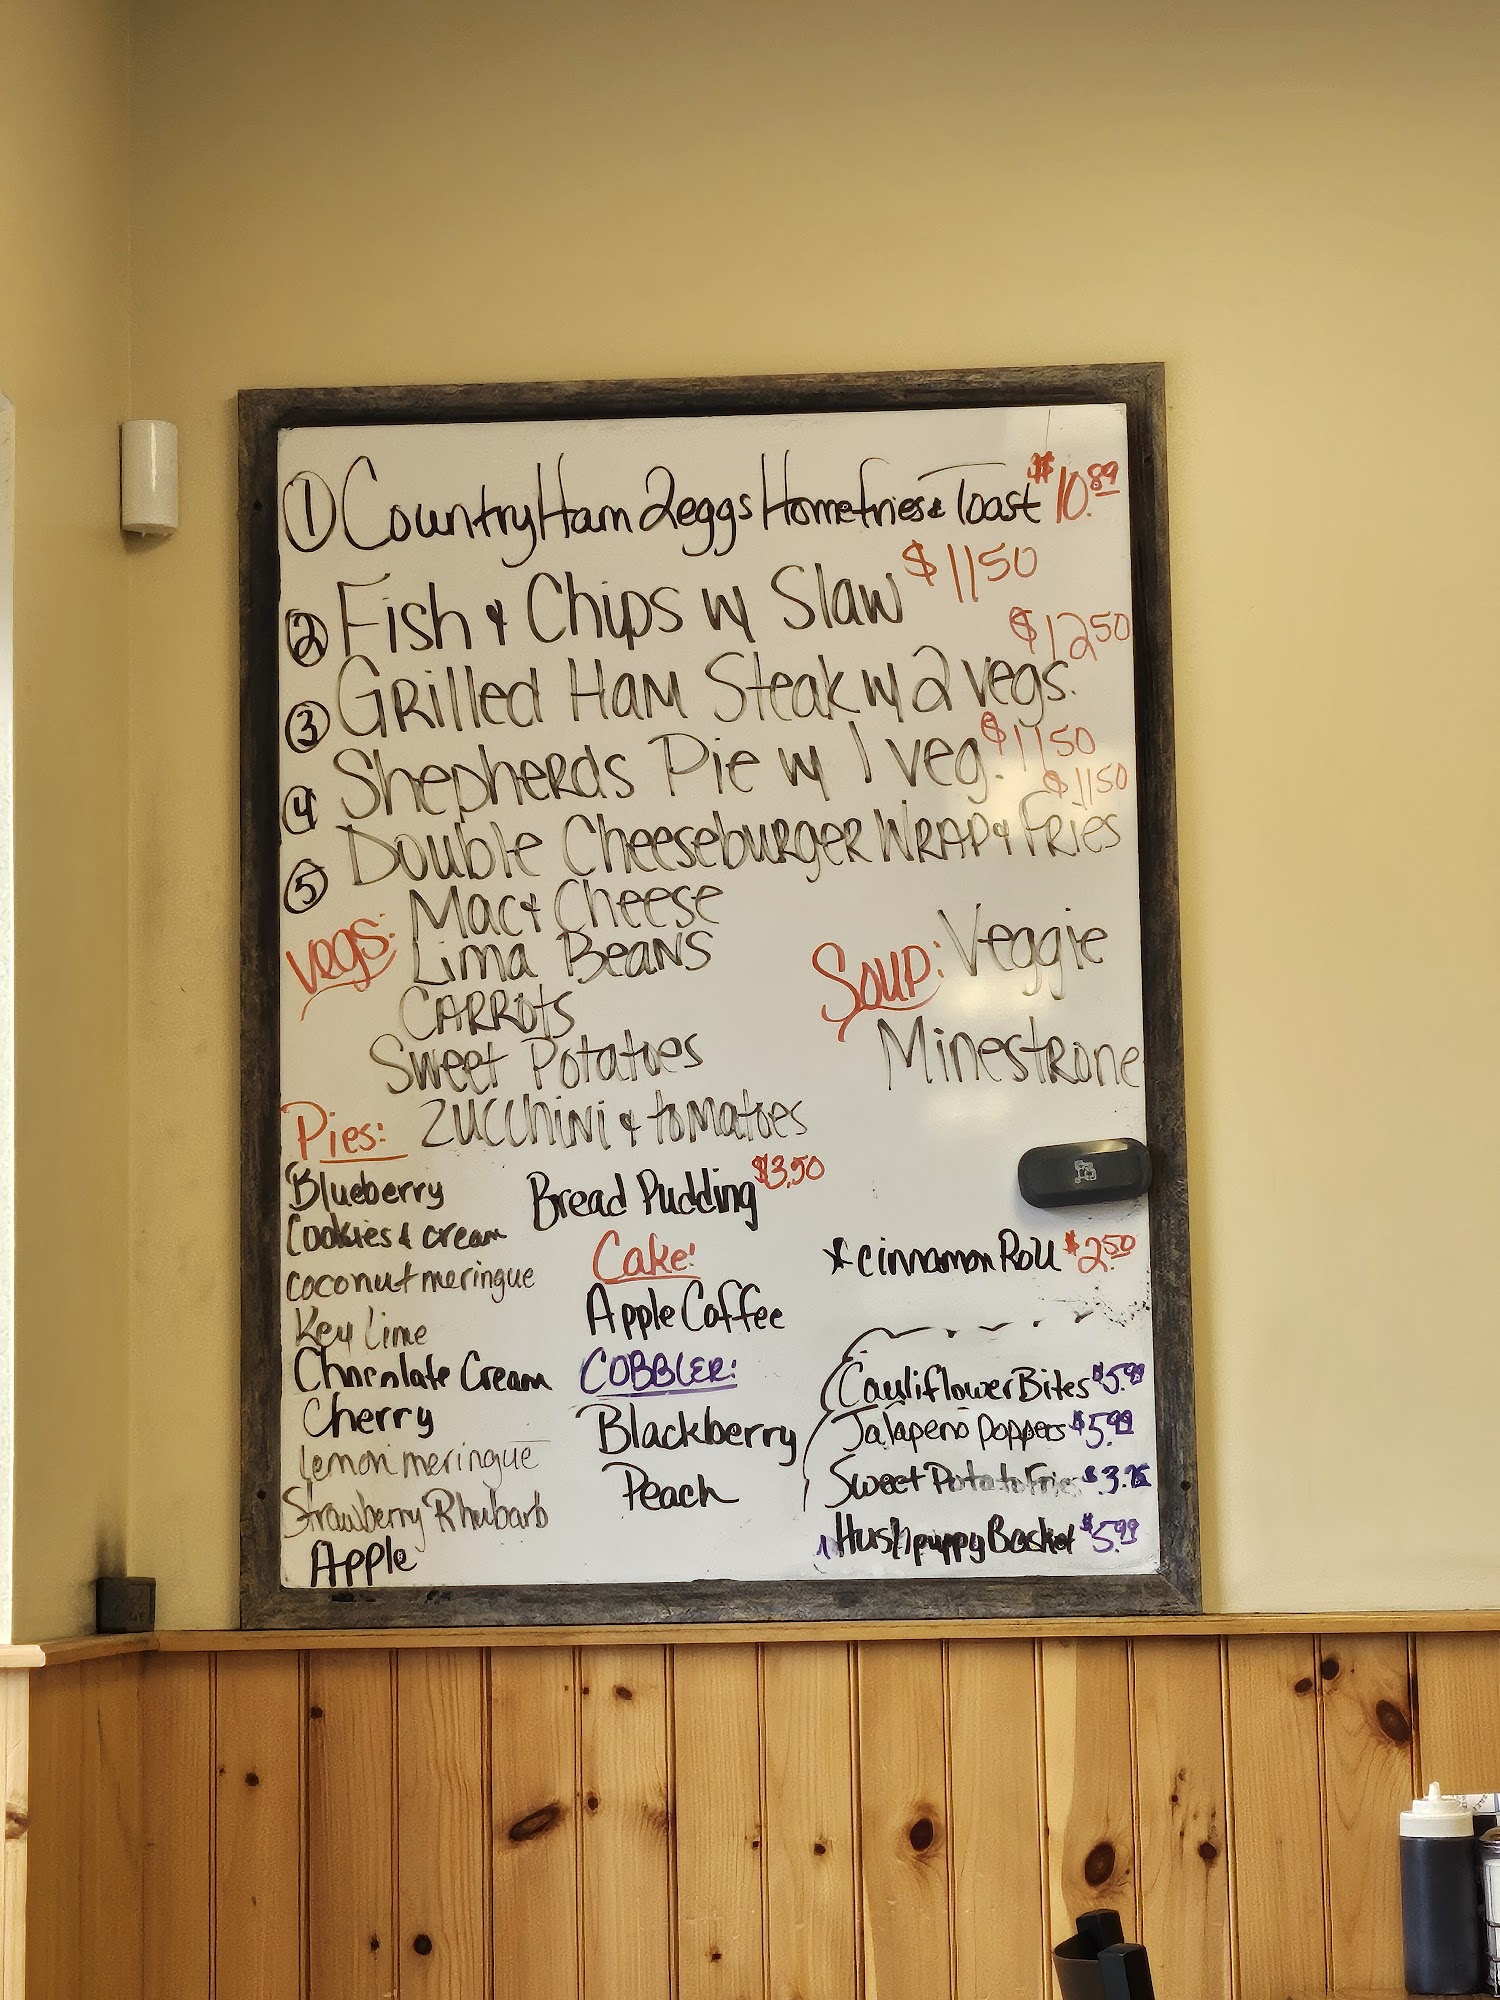 ① Country Ham 2eggs Homefries & Toast $10.89
② Fish & Chips w/ Slaw $11.50
③ Grilled Ham Steak w/ 2 vegs. $12.50
④ Shepherds Pie w/ 1 veg. $11.50
⑤ Double Cheeseburger Wrap & Fries $11.50
Vegs: Mac & Cheese
Lima Beans
Carrots
Sweet Potatoes
Zucchini & tomatoes
Soup: Veggie
Minestrone
Pies:
Blueberry
Cookies & cream
coconut meringue
Key Lime
Chocolate Cream
Cherry
Lemon meringue
Strawberry Rhubarb
Apple
Bread Pudding $3.50
Cake:
Apple Coffee
COBBLER:
Blackberry
Peach
*cinnamon Roll $2.50
Cauliflower Bites $5.99
Jalapeno Poppers $5.99
Sweet Potato Fries $3.75
Hushpuppy Basket $5.99